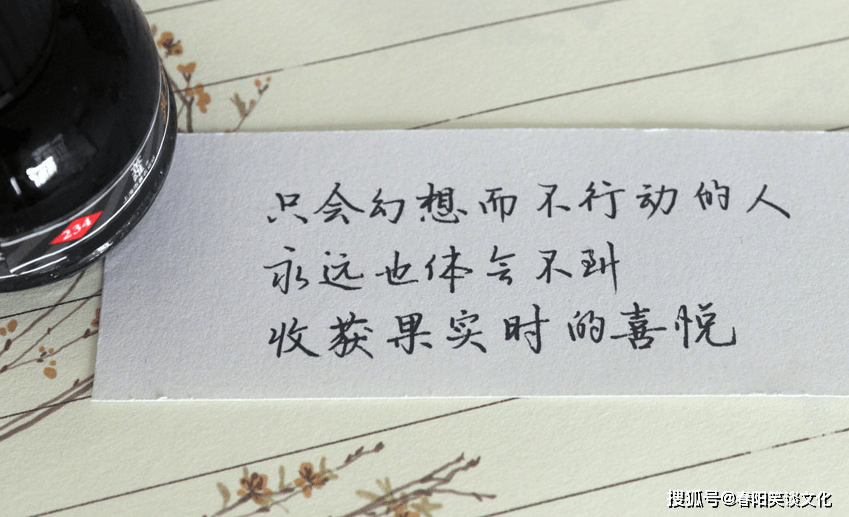 234
只会幻想而不行动的人
永远也体会不到
收获果实时的喜悦
搜狐号@春阳笑谈文化